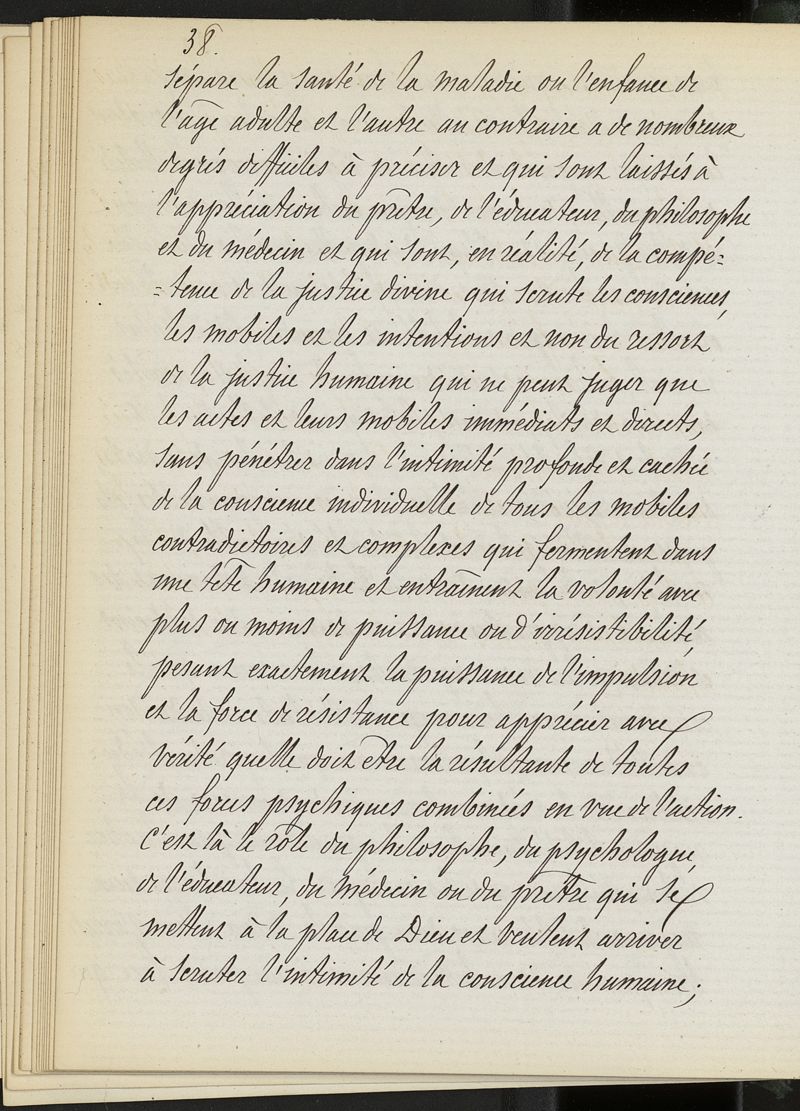 38.
sépare la santé de la maladie ou l'enfance de
l'age adulte et l'autre au contraire a de nombreux
degrés difficiles à préciser et qui sont laissés à
l'appréciation du prêtre, de l'éducateur, du philosophe
et du médecin et qui sont, en réalité, de la compé=
=tence de la justice divine qui scrute les consciences,
les mobiles et les intentions et non du ressort
de la justice humaine qui ne peut juger que
les actes et leurs mobiles immédiats et directs,
sans pénétrer dans l'intimité profonde et cachée
de la conscience individuelle de tous les mobiles
contradictoires et complexes qui fermentent dans
une tête humaine et entraînent la volonté avec
plus ou moins de puissance ou d'irrésistibilité,
pesant exactement la puissance de l'impulsion
et la force de résistance pour apprécier avec
vérité quelle doit être la résultante de toutes
ces forces psychiques combinées en vue de l'action.
C'est là le rôle du philosophe, du psychologue,
de l'éducateur, du médecin ou du prêtre qui se
mettent à la place de Dieu et veulent arriver
à scruter l'intimité de la conscience humaine;